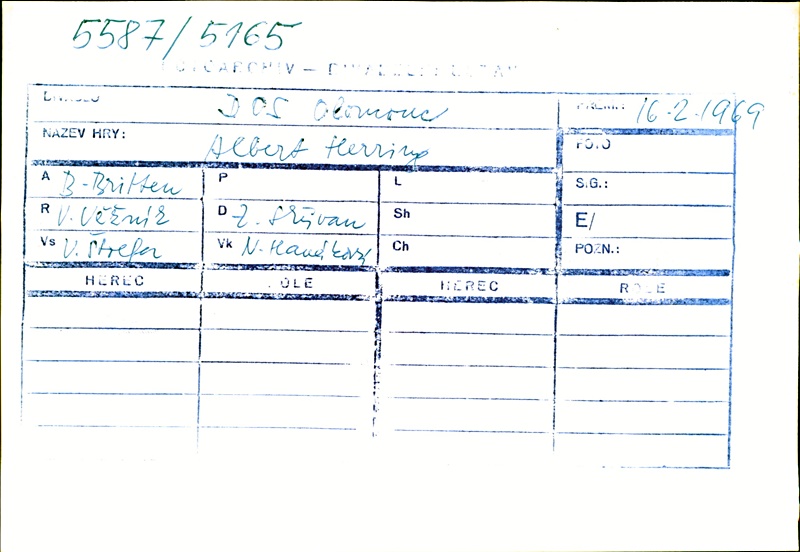 5587/5165
FOTOARCHIV — DIVADELNÍ ÚSTAV
DIVADLO DOS Olomouc PREM.: 16.2.1969
NÁZEV HRY: Albert Herring FOTO
A B. Britten P L S.G.:
R V. Věžník D Z. Sh Sh E/
Vs V. Štrefa Vk N. Hanáková Ch POZN.:
HEREC ROLE HEREC ROLE